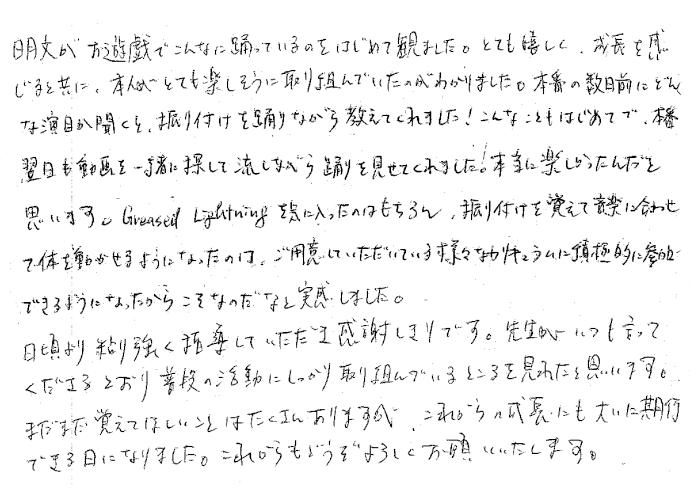 明文が お遊戯でこんなに踊っているのをはじめて観ました。とても嬉しく、成長を感
じると共に、本人がとても楽しそうに取り組んでいたのがわかりました。本番の数日前にどん
な演目か聞くと、振り付けを踊りながら教えてくれました！こんなこともはじめてで、本番
翌日も動画を一緒に探して流しながら踊りを見せてくれました！本当に楽しかったんだと
思います。Greased Lightningを気に入ったのはもちろん、振り付けを覚えて音楽に合わせ
て体を動かせるようになったのは、ご用意していただいている様々なカリキュラムに積極的に参加
できるようになったからこそなのだなと実感しました。
日頃より粘り強く指導していただき感謝しきりです。先生がいつも言って
くださるとおり普段の活動にしっかり取り組んでいるところを見れたと思います。
まだまだ覚えてほしいことはたくさんありますが、これからの成長にも大いに期待
できる日になりました。これからもどうぞよろしくお願いいたします。